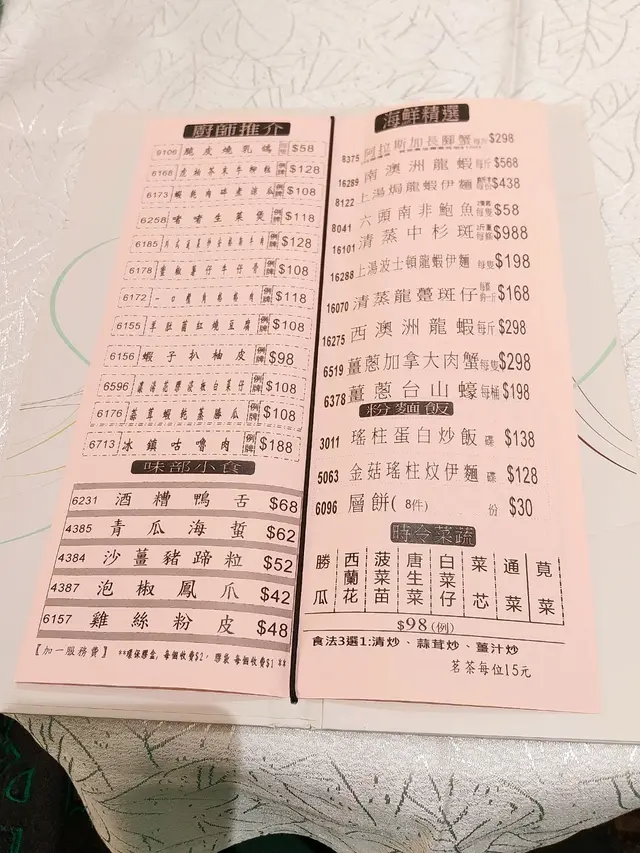 廚師推介
9106 脆皮燒乳鴿 $58
6168 $128
6173 $108
6258 啫啫生菜煲 例牌 $118
6185 例牌 $128
6178 椒薯仔牛仔骨 例牌 $108
6172 一口 例牌 $118
6155 紅燒豆腐 例牌 $108
6156 蝦子扒柚皮 例牌 $98
6596 菜仔 例牌 $108
6176 蝦乾蒸勝瓜 例牌 $108
6713 冰鎮咕嚕肉 例牌 $188
味部小食
6231 酒糟鴨舌 $68
4385 青瓜海蜇 $62
4384 沙薑豬蹄粒 $52
4387 泡椒鳳爪 $42
6157 雞絲粉皮 $48
【加一服務費】 **環保膠盒, 每個收費$2, 膠袋 每個收費$1 **
海鮮精選
8375 阿拉斯加長腳蟹 $298
16289 南澳洲龍蝦 每斤 $568
8122 上湯焗龍蝦伊麵 $438
8041 六頭南非鮑魚 每隻 $58
16101 清蒸中杉斑 每條 $988
16288 上湯波士頓龍蝦伊麵 每隻 $198
16070 清蒸龍躉斑仔 $168
16275 西澳洲龍蝦 每斤 $298
6519 薑蔥加拿大肉蟹 每隻 $298
6378 薑蔥台山蠔 每桶 $198
粉麵飯
3011 瑤柱蛋白炒飯 碟 $138
5063 金菇瑤柱炆伊麵 碟 $128
6096 層餅( 8件) 份 $30
時令菜蔬
勝瓜
西蘭花
菠菜苗
唐生菜
白菜仔
菜芯
通菜
莧菜
$98 (例)
食法3選1:清炒、蒜茸炒、薑汁炒
茗茶每位15元